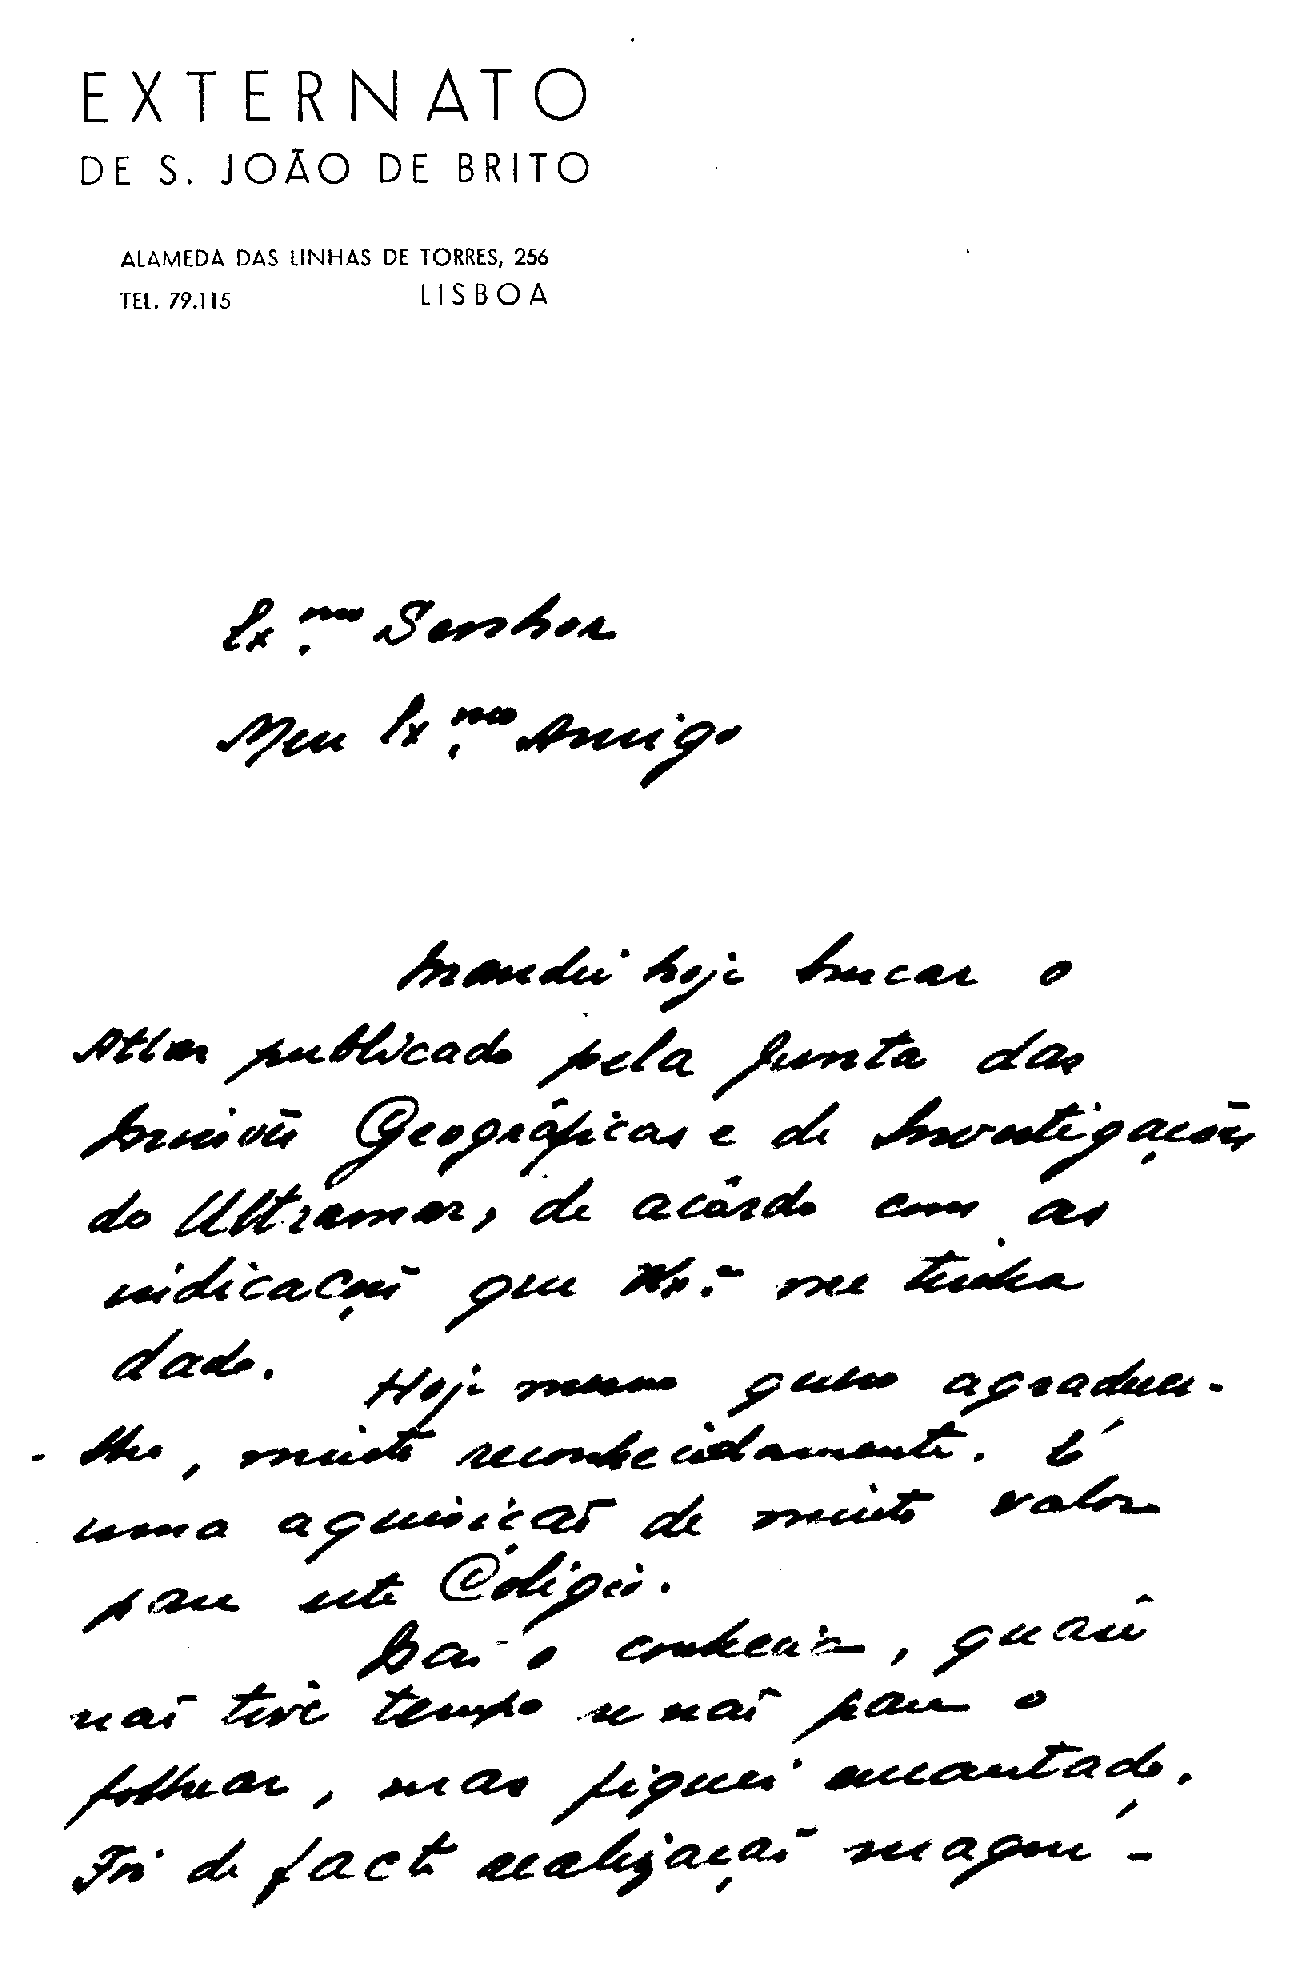 EXTERNATO
DE S. JOÃO DE BRITO
ALAMEDA DAS LINHAS DE TORRES, 256
TEL. 79.115 LISBOA
Ex.mo Senhor
Meu Ex.mo Amigo
Mandei hoje buscar o
Atlas publicado pela Junta das
Missões Geográficas e de Investigações
do Ultramar, de acôrdo com as
indicações que me tinha
dado.
Hoje mesmo quero agradecer-
-lhe, muito reconhecidamente. É
uma aquisição de muito valor
para este Colégio.
Não o conhecia, quasi
não tive tempo senão para o
folhear, mas fiquei encantado.
Foi de facto realização magní-